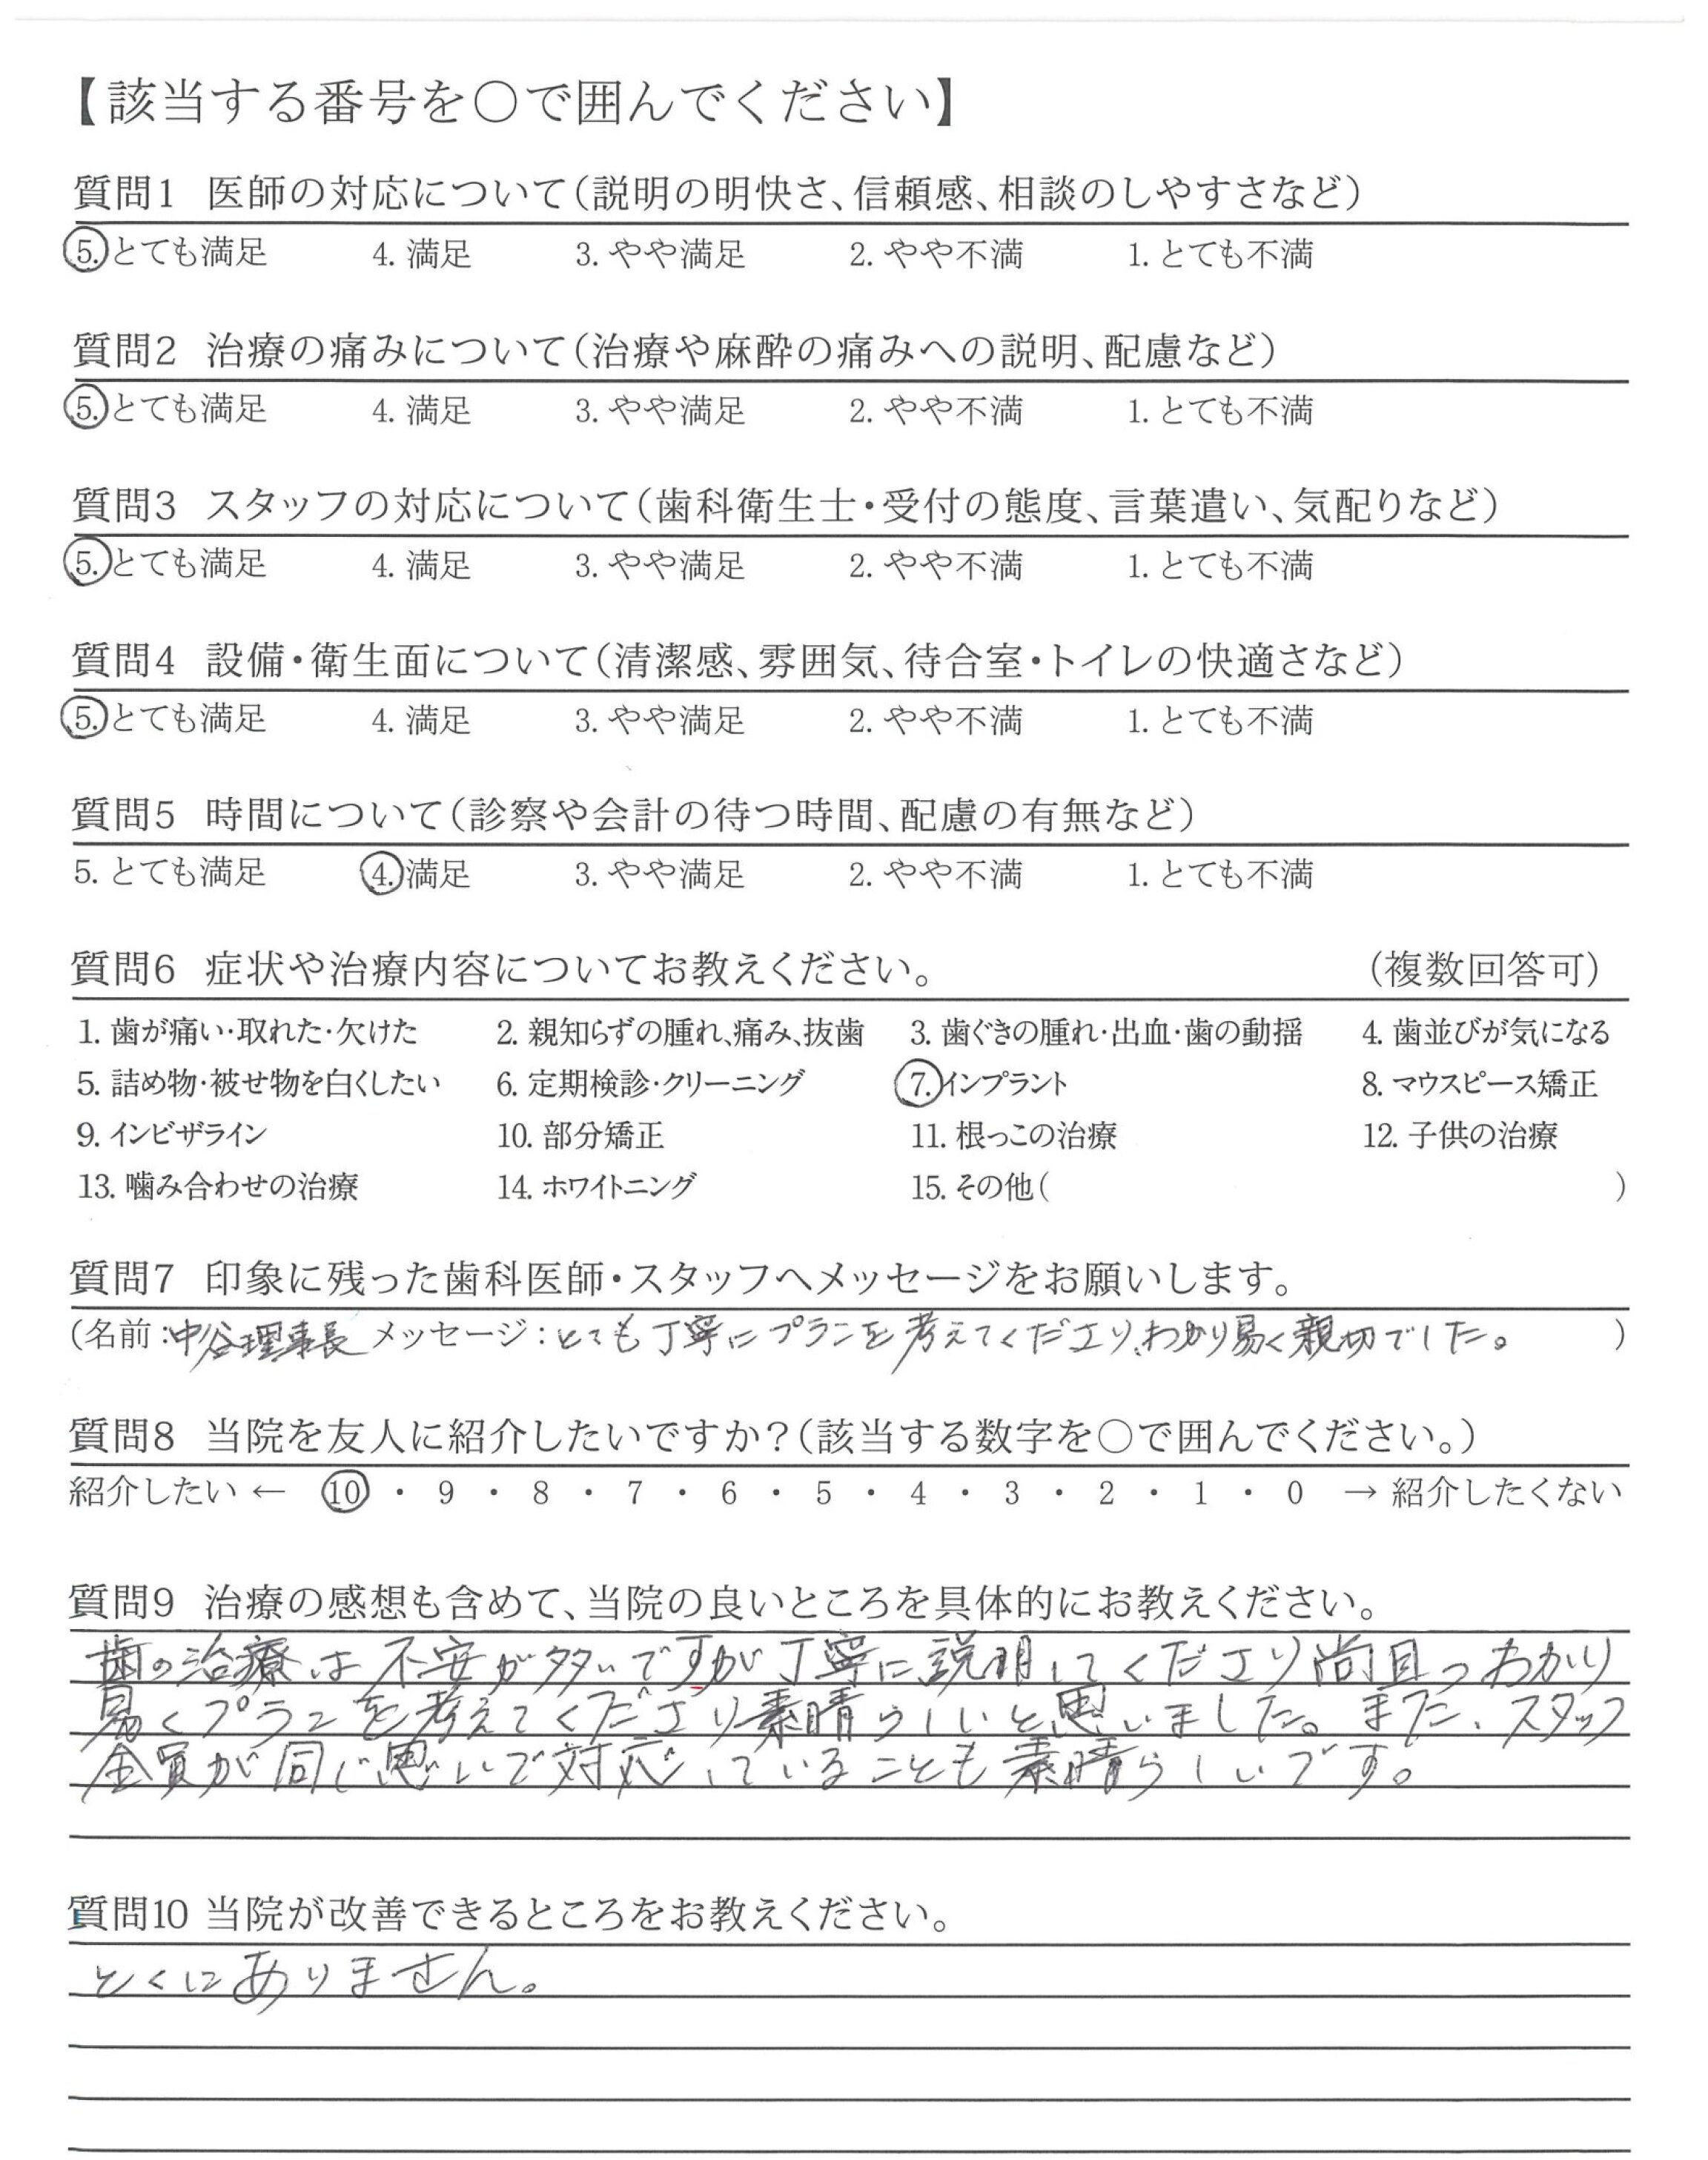 【該当する番号を〇で囲んでください】
質問1 医師の対応について（説明の明快さ、信頼感、相談のしやすさなど）
5. とても満足 4. 満足 3. やや満足 2. やや不満 1. とても不満
質問2 治療の痛みについて（治療や麻酔の痛みへの説明、配慮など）
5. とても満足 4. 満足 3. やや満足 2. やや不満 1. とても不満
質問3 スタッフの対応について（歯科衛生士・受付の態度、言葉遣い、気配りなど）
5. とても満足 4. 満足 3. やや満足 2. やや不満 1. とても不満
質問4 設備・衛生面について（清潔感、雰囲気、待合室・トイレの快適さなど）
5. とても満足 4. 満足 3. やや満足 2. やや不満 1. とても不満
質問5 時間について（診察や会計の待つ時間、配慮の有無など）
5. とても満足 4. 満足 3. やや満足 2. やや不満 1. とても不満
質問6 症状や治療内容についてお教えください。 （複数回答可）
1. 歯が痛い・取れた・欠けた 2. 親知らずの腫れ、痛み、抜歯 3. 歯ぐきの腫れ・出血・歯の動揺 4. 歯並びが気になる
5. 詰め物・被せ物を白くしたい 6. 定期検診・クリーニング 7. インプラント 8. マウスピース矯正
9. インビザライン 10. 部分矯正 11. 根っこの治療 12. 子供の治療
13. 噛み合わせの治療 14. ホワイトニング 15. その他（ ）
質問7 印象に残った歯科医師・スタッフへメッセージをお願いします。
（名前：中谷理事長 メッセージ：とても丁寧にプランを考えてくださり、わかり易く親切でした。 ）
質問8 当院を友人に紹介したいですか？（該当する数字を〇で囲んでください。）
紹介したい ← 10 ・ 9 ・ 8 ・ 7 ・ 6 ・ 5 ・ 4 ・ 3 ・ 2 ・ 1 ・ 0 → 紹介したくない
質問9 治療の感想も含めて、当院の良いところを具体的にお教えください。
歯の治療は不安が多いですが丁寧に説明してくださり尚且つわかり
易くプランを考えてくださり素晴らしいと思いました。また、スタッフ
全員が同じ思いで対応していることも素晴らしいです。
質問10 当院が改善できるところをお教えください。
とくにありません。